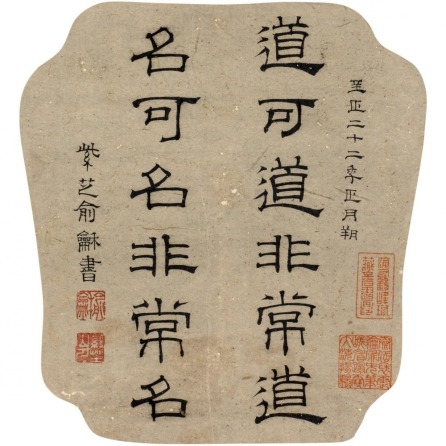 至正二十二年正月朔
道可道非常道
名可名非常名
紫芝俞龢書